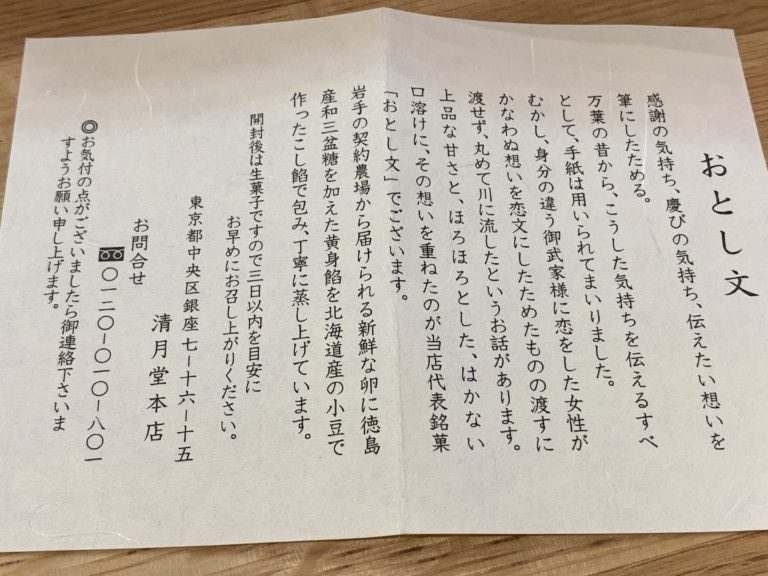 おとし文
感謝の気持ち、慶びの気持ち、伝えたい想いを
筆にしたためる。
万葉の昔から、こうした気持ちを伝えるすべ
として、手紙は用いられてまいりました。
むかし、身分の違う御武家様に恋をした女性が
かなわぬ想いを恋文にしたためたものの渡すに
渡せず、丸めて川に流したというお話があります。
上品な甘さと、ほろほろとした、はかない
口溶けに、その想いを重ねたのが当店代表銘菓
「おとし文」でございます。
岩手の契約農場から届けられる新鮮な卵に徳島
産和三盆糖を加えた黄身餡を北海道産の小豆で
作ったこし餡で包み、丁寧に蒸し上げています。
開封後は生菓子ですので三日以内を目安に
お早めにお召し上がりください。
東京都中央区銀座七ー十六ー十五
清月堂本店
お問合せ
〇一二〇ー〇一〇ー八〇一
◎お気付の点がございましたら御連絡下さいま
すようお願い申し上げます。